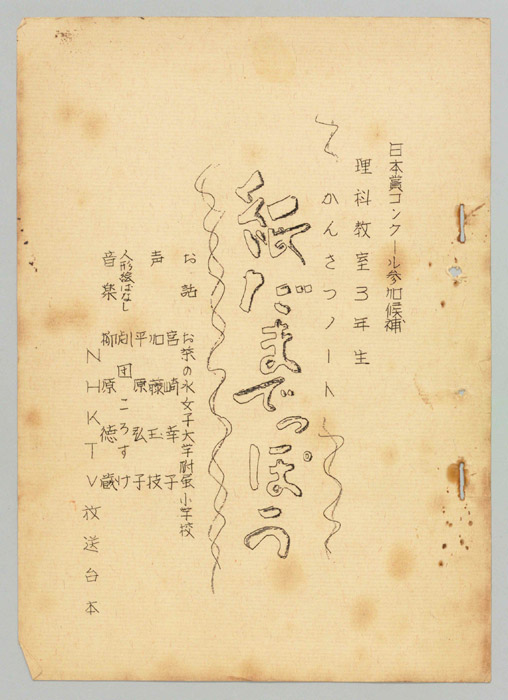 日本賞コンクール参加候補
理科教室3年生
かんさつノート
紙だまでっぽう
お話 お茶の水女子大学附属小学校
宮崎幸子
声 加藤玉枝
平原弘子
人形絵ばなし 劇団ころすけ
音楽 柳原徳蔵
NHKTV放送台本